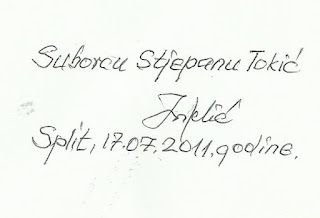 Suborcu Stjepanu Tokić
Split, 17.07.2011. godine.